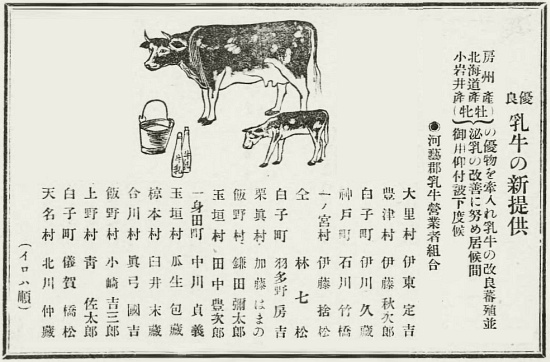 優良 乳牛の新提供
房州産
北海道産
小岩井産
牡
牝
の優物を索入れ乳牛の改良蕃殖並
泌乳の改善に努め居候間
御用仰付被下度候
●河藝郡乳牛營業者組合
大里村 伊東定吉
豊津村 伊藤秋次郎
白子町 伊藤久藏
神戸町 石川竹橋
一ノ宮村 伊藤捨松
仝 林七松
白子町 羽多野房吉
栗眞村 加藤はまの
飯野村 鎌田彌太郎
玉垣村 田中豊次郎
一身田町 中川貞義
玉垣村 瓜生包藏
椋本村 臼井末藏
合川村 眞弓國吉
飯野村 小崎吉三郎
上野村 靑佐太郎
白子町 儀賀橋松
天名村 北川仲藏
(イロハ順)
牛乳